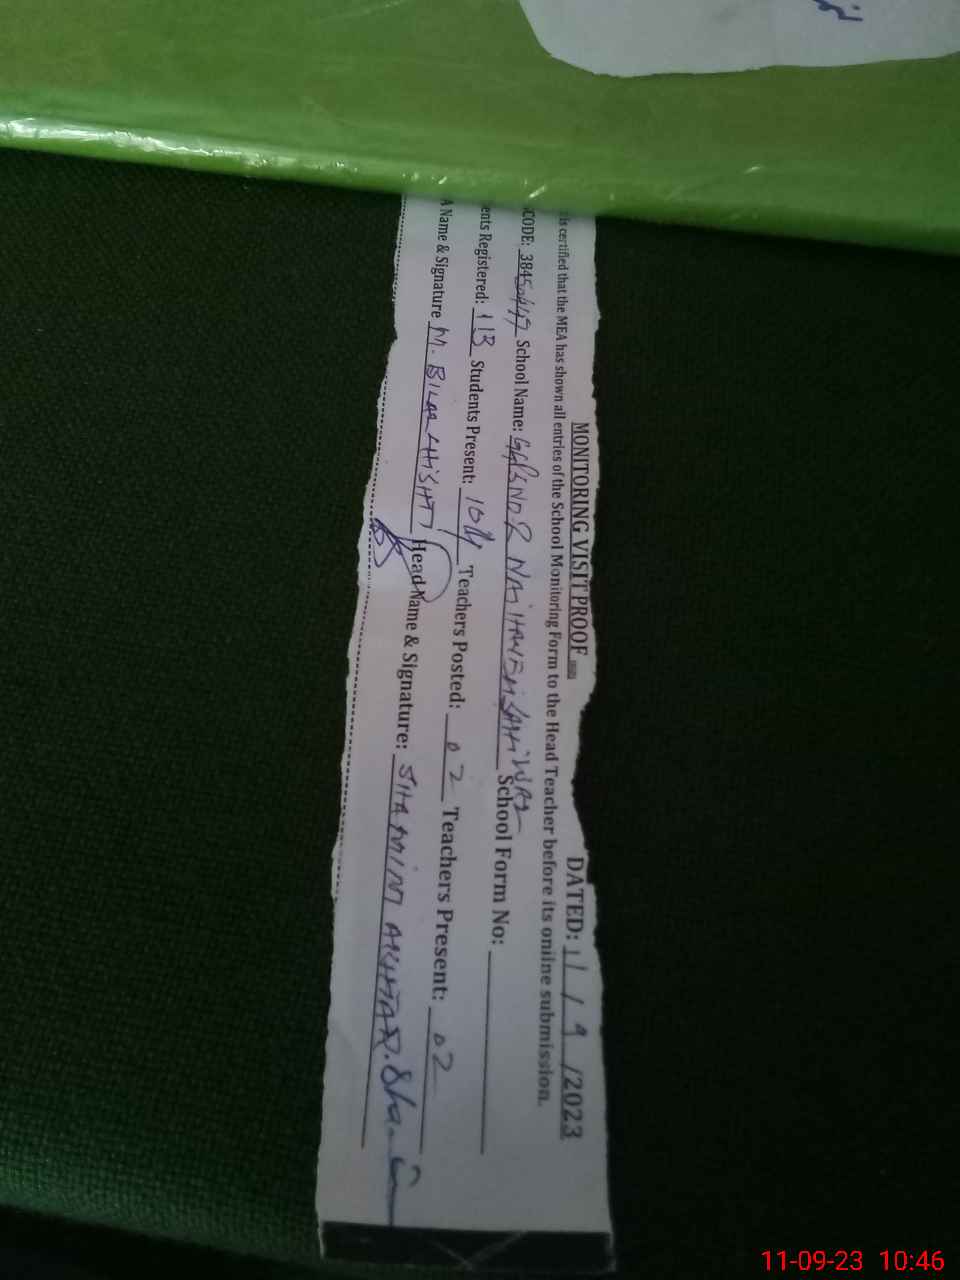 MONITORING VISIT PROOF DATED: 11 / 9 /2023
is certified that the MEA has shown all entries of the School Monitoring Form to the Head Teacher before its onilne submission.
CODE: School Name: School Form No:
ents Registered: 113 Students Present: 104 Teachers Posted: 02 Teachers Present: 02
A Name & Signature M. BILAL CHISHTI Head Name & Signature: SHAMIM AKHTAR. Shamim
11-09-23 10:46